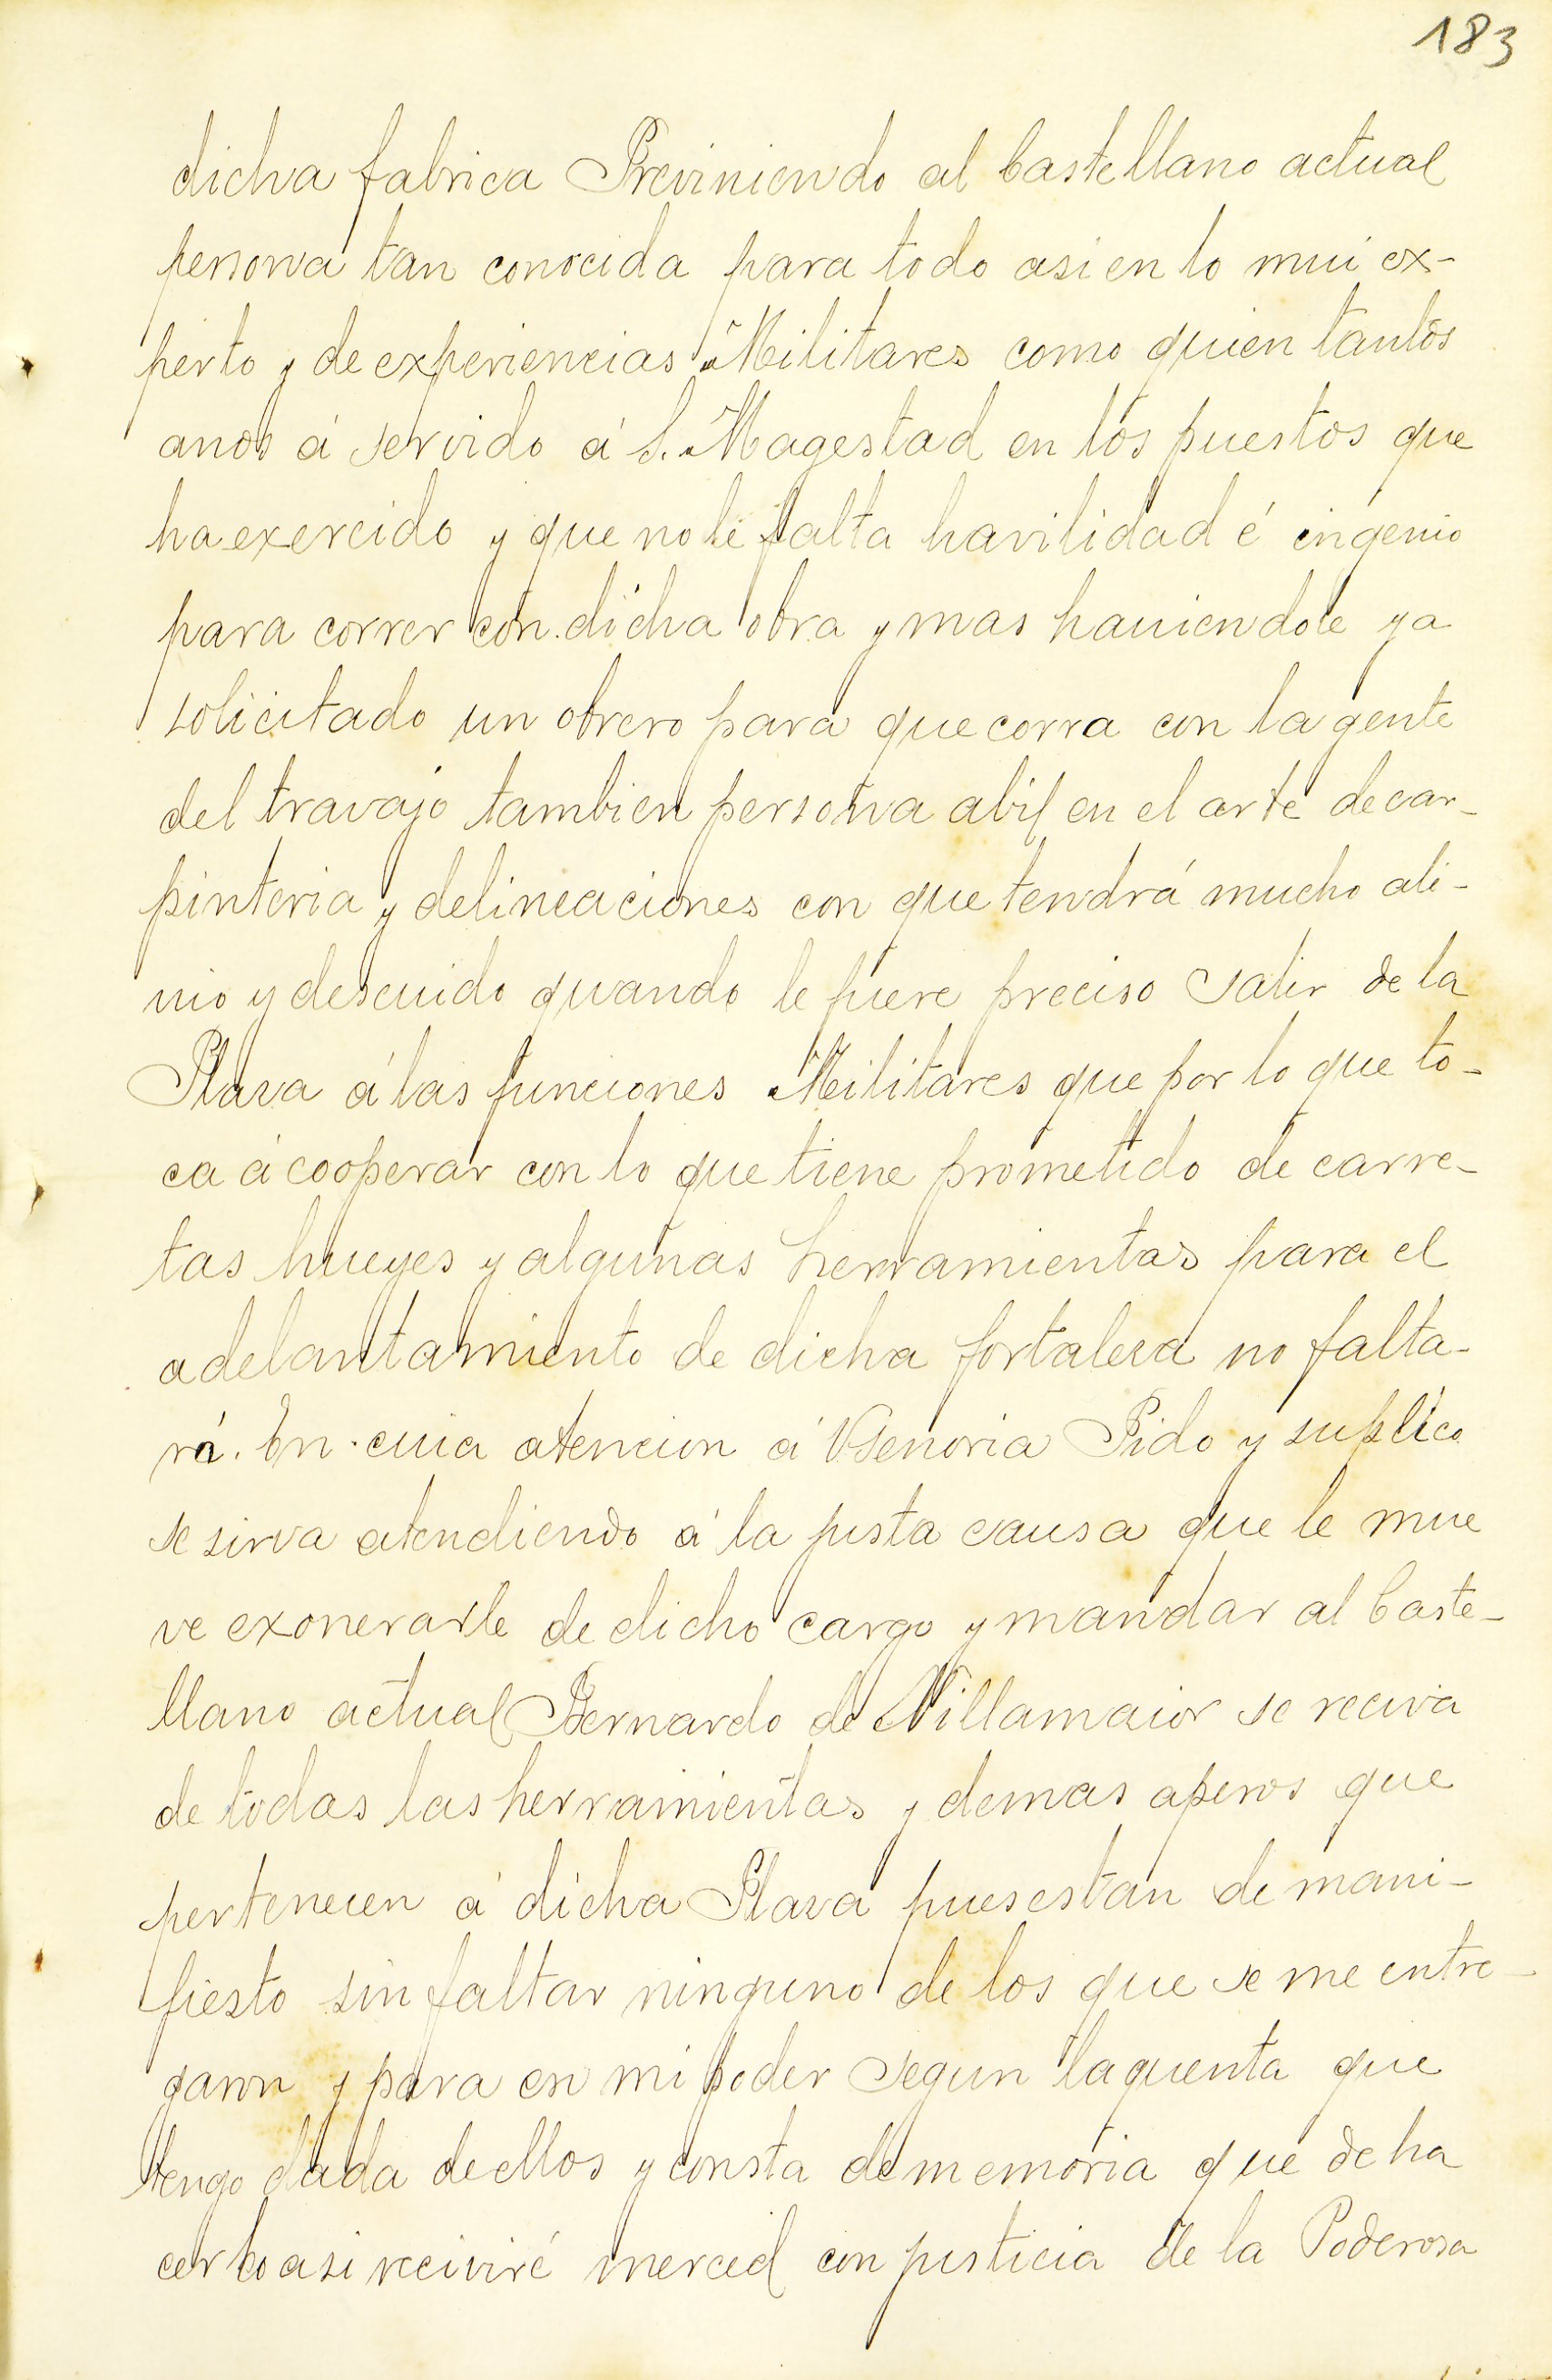 183
dicha fabrica Previniendo al Castellano actual
persona tan conocida para todo asi en lo mui ex-
perto y de experiencias Militares como quien tantos
anos á servido á S. Magestad en los puestos que
ha exercido y que no le falta havilidad é ingenio
para correr con dicha obra y mas haviendole ya
solicitado un obrero para que corra con la gente
del travajo tambien persona abil en el arte de car-
pinteria y delineaciones con que tendrá mucho ali-
vio y descuido quando le fuere preciso salir de la
Plaza á las funciones Militares que por lo que to-
ca á cooperar con lo que tiene prometido de carre-
tas hueyes y algunas herramientas para el
adelantamiento de dicha fortaleza no falta-
rá. En cuia atencion á VSenoria Pido y suplico
se sirva atendiendo á la justa causa que le mue
ve exonerarle de dicho cargo y mandar al Caste-
llano actual Bernardo de Villamaior se reciva
de todas las herramientas y demas aperos que
pertenecen á dicha Plaza pues estan de mani-
fiesto sin faltar ninguno de los que se me entre-
garon y para en mi poder segun la quenta que
tengo dada de ellos y consta de memoria que de ha
cerlo asi reciviré merced con justicia de la Poderosa